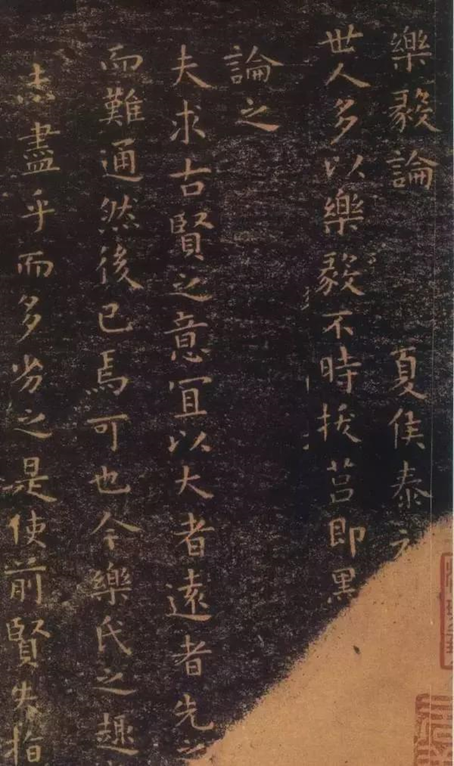 樂毅論 夏侯泰
世人多以樂毅不時拔莒即墨
論之
夫求古賢之意宜以大者遠者先之
而難通然後已焉可也今樂氏之趣
盡乎而多劣之是使前賢失指